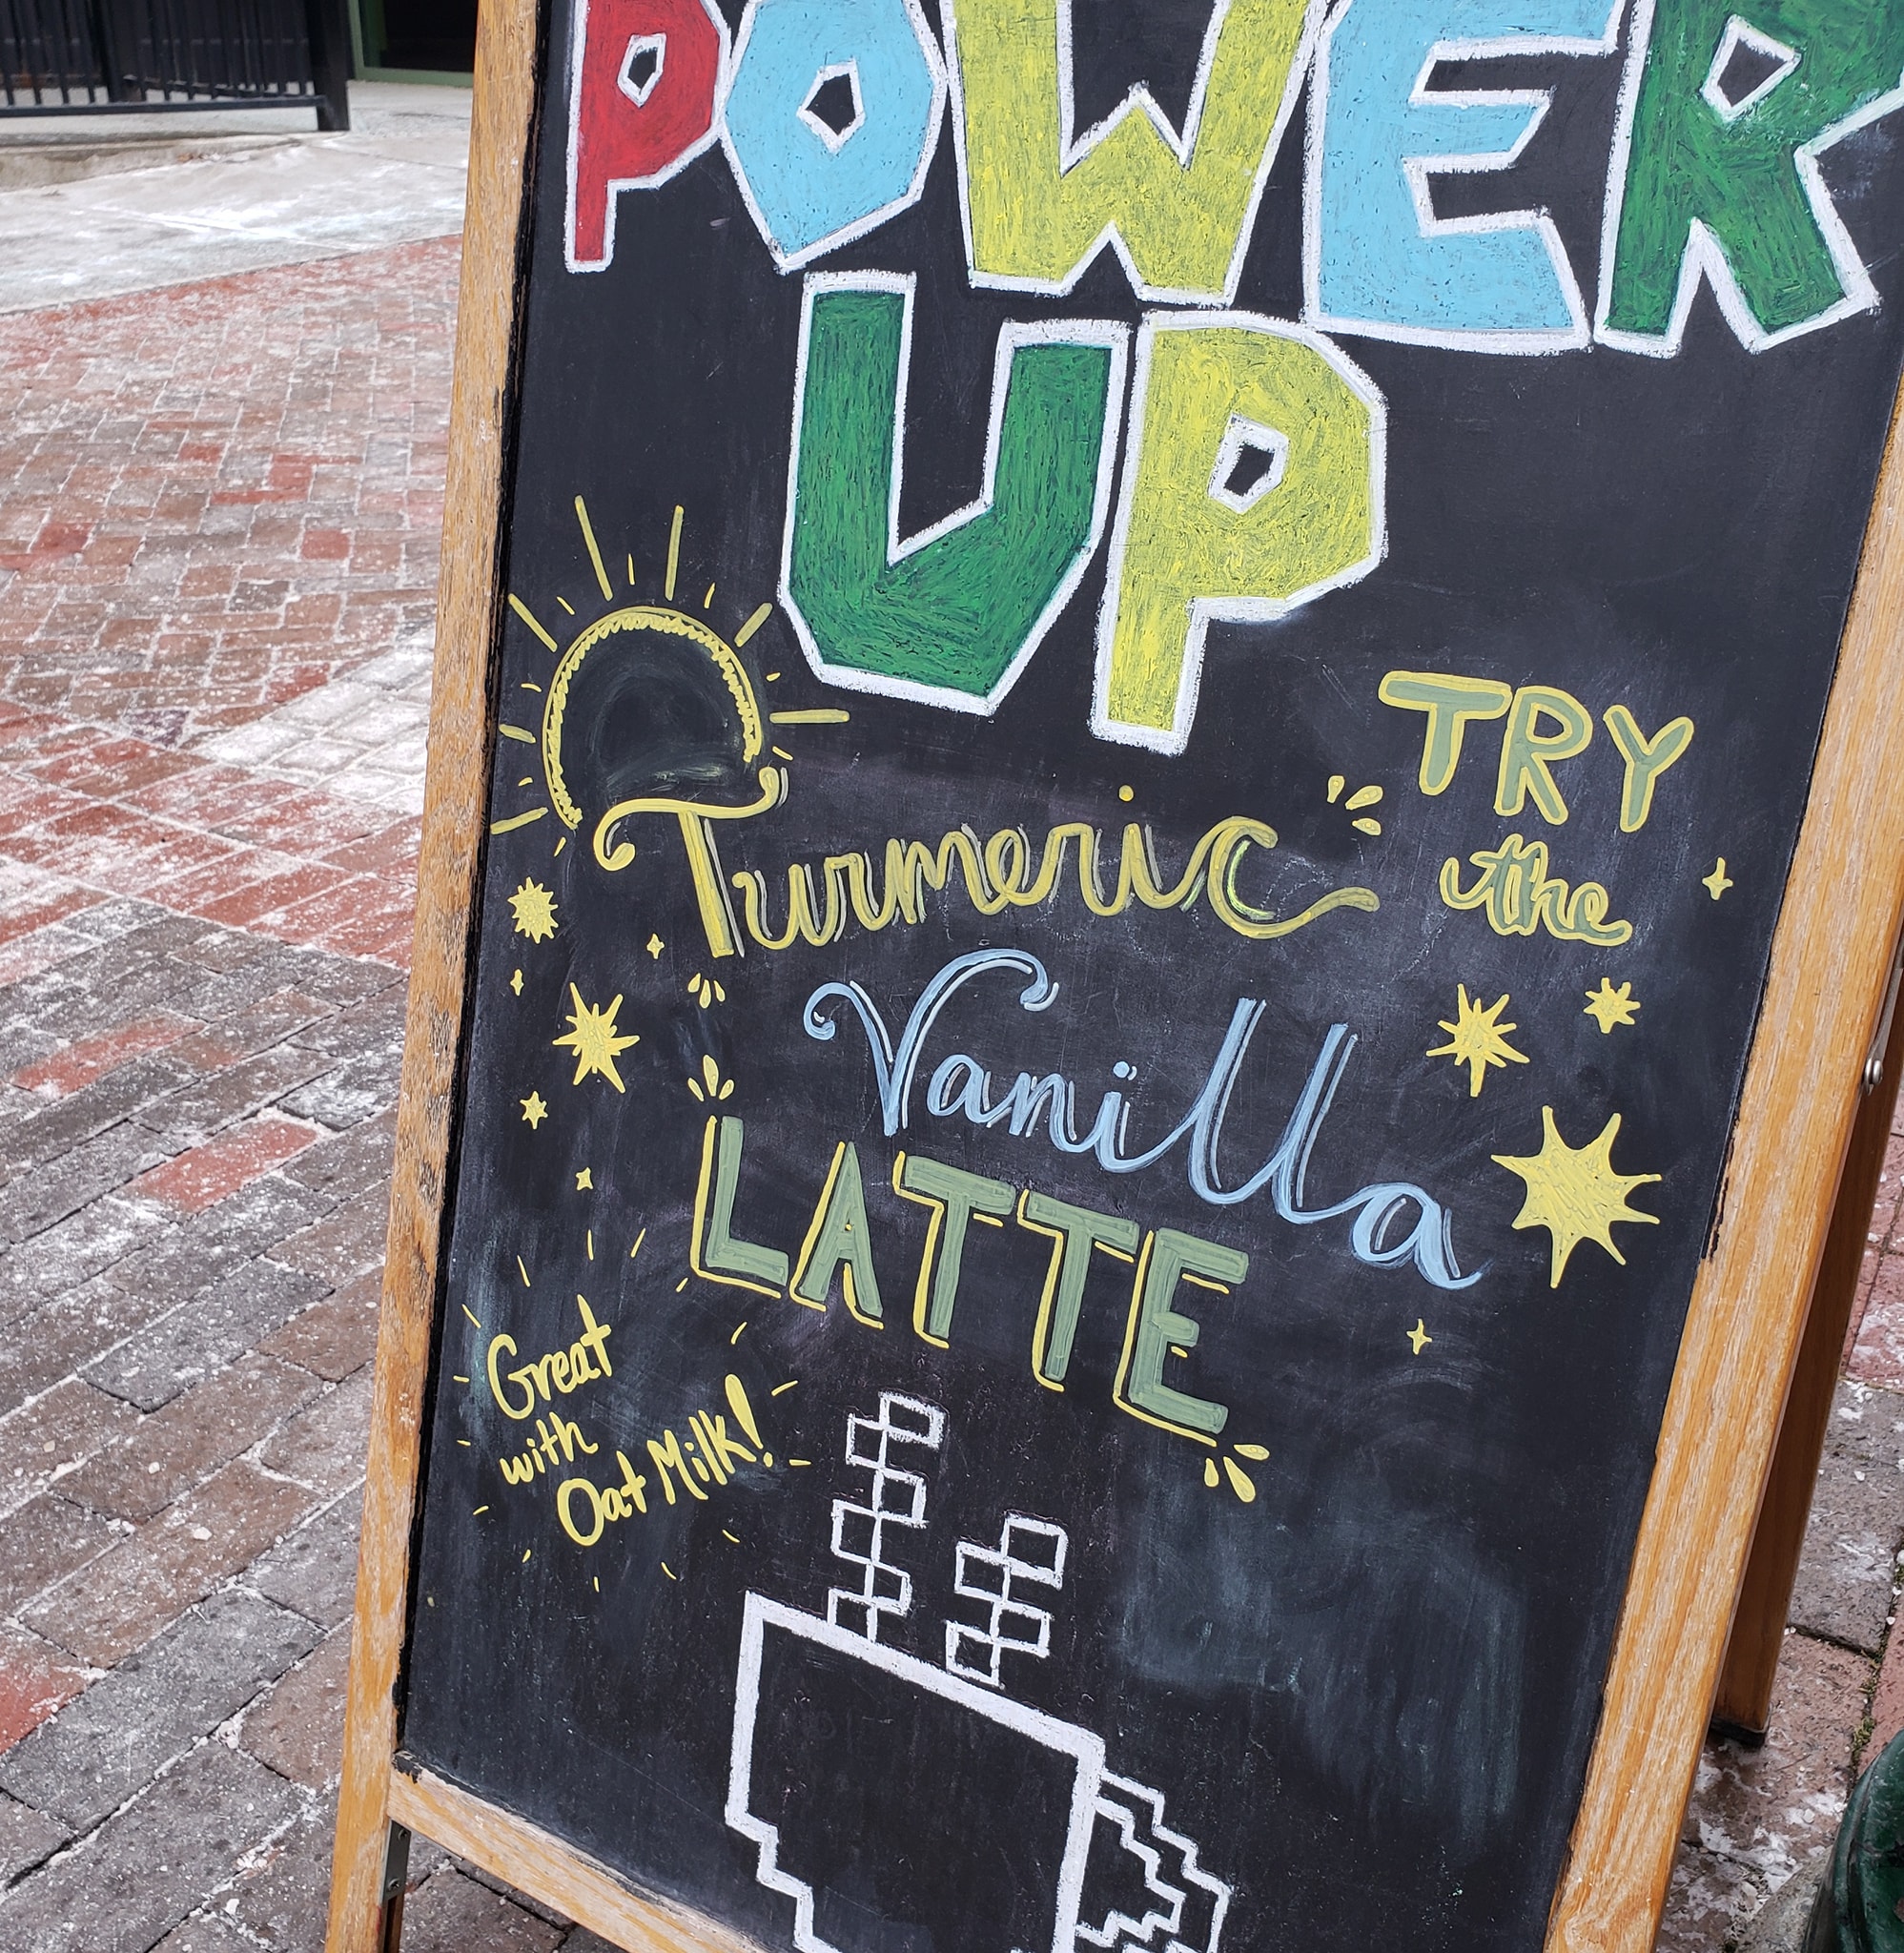 POWER
UP
TRY
the
Turmeric
Vanilla
LATTE
Great
with
Oat Milk!